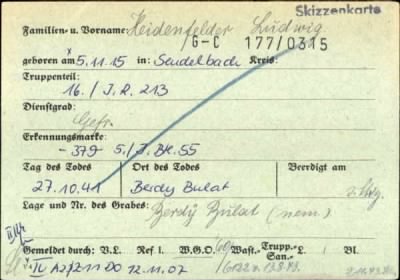 Skizzenkarte
Familien- u. Vorname: Heidenfelder Ludwig
G-C 177/0315
geboren am 5.11.15 in: Sendelbach Kreis:
Truppenteil:
16./J.R. 213
Dienstgrad:
Gefr.
Erkennungsmarke:
-379 5./J.Btl.55
Tag des Todes Ort des Todes Beerdigt am
27.10.41 Berdy Bulat
Lage und Nr. des Grabes: Berdy Bulat (nem.)
Gemeldet durch: V.L. Ref I. W.G.O. Wast.- Trupp.- San.- L. Bl.
12.11.07